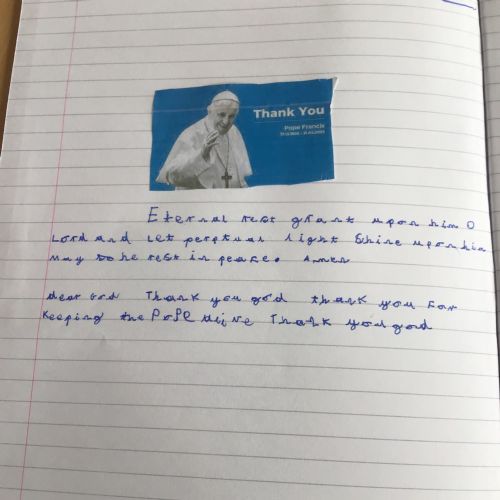 Thank You
Pope Francis
17.12.1936 - 21.04.2025
Eternal rest grant upon him O
Lord and let perptual light Shine upon him
may to he rest in peace. Amen
dear God Thank you god thank you for
keeping the PoPe alive Thank you god